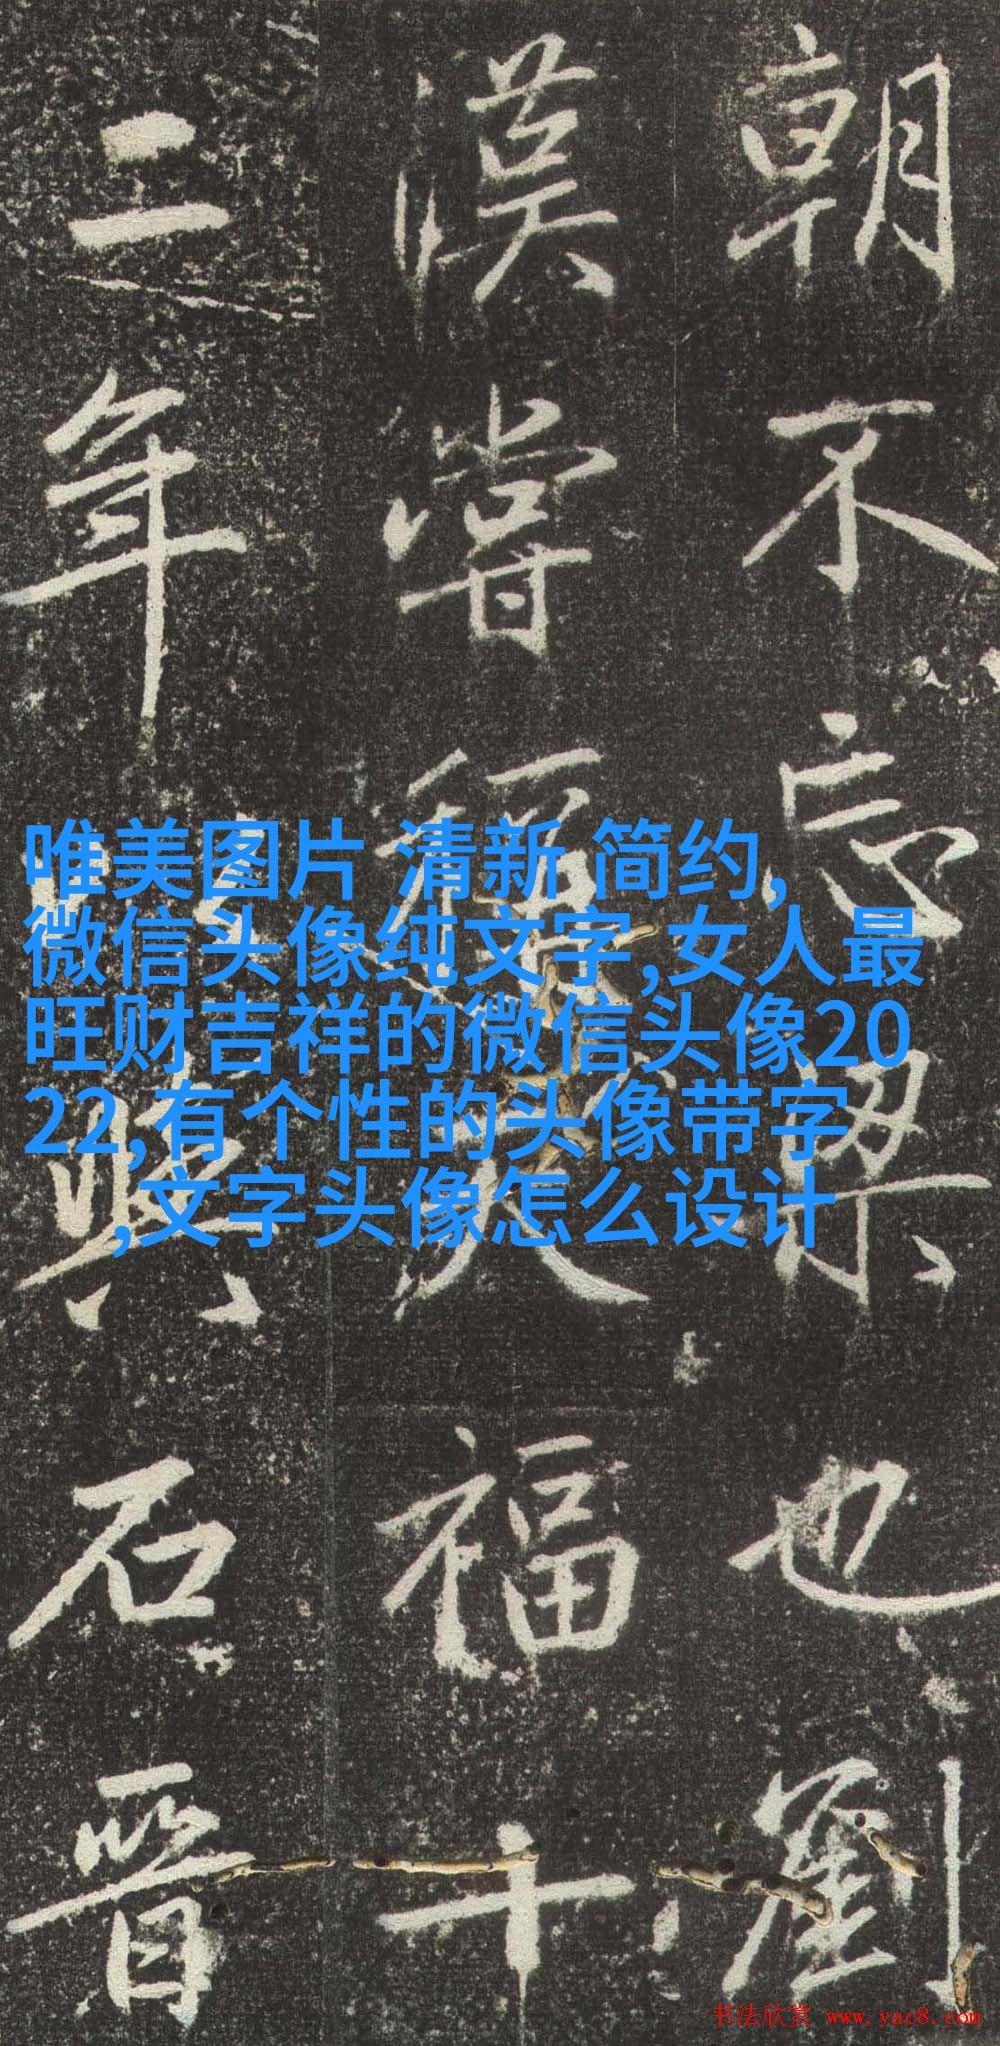 朝不忘梁也劉
漢嘗稱天福十
二年與石晋
唯美图片 清新 简约,
微信头像纯文字,女人最
旺财吉祥的微信头像20
22,有个性的头像带字
,文字头像怎么设计
书法欣赏 www.yac8.com